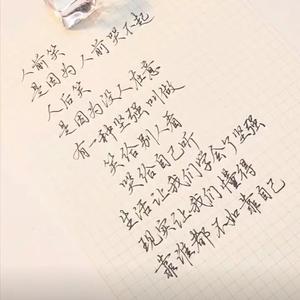 人前笑
是因为人前哭不起
人后笑
是因为没人在意
有一种坚强叫做
笑给别人看
哭给自己听
生活让我们学会了坚强
现实让我们懂得
靠谁都不如靠自己